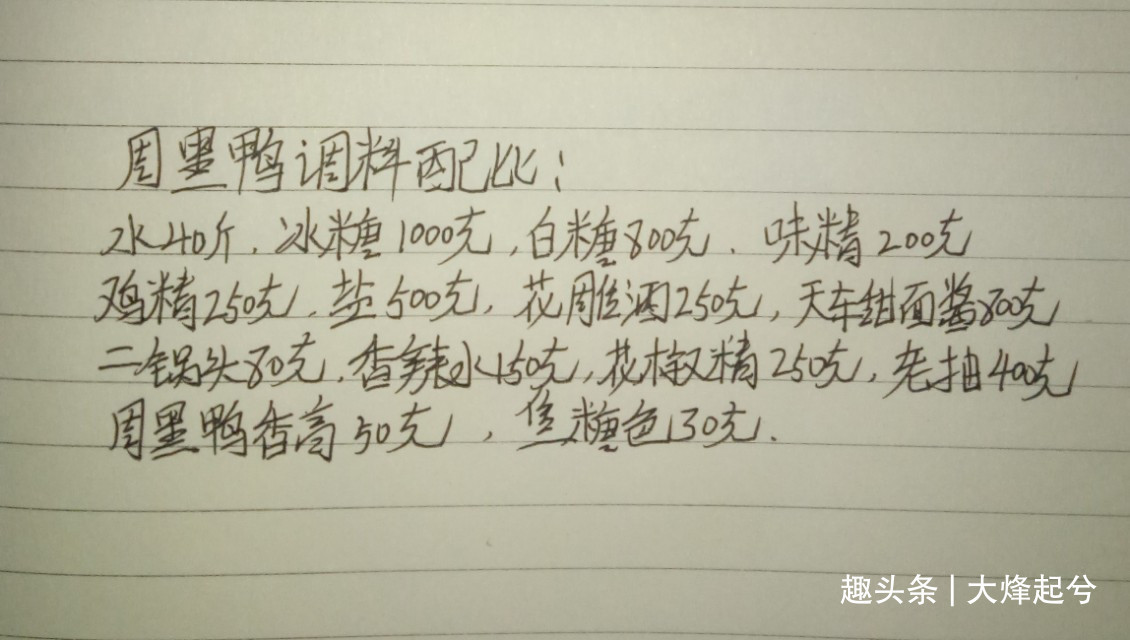 周黑鸭调料配比:
水40斤.冰糖1000克,白糖800克.味精200克
鸡精250克.盐500克,花雕酒250克,天车甜面酱800克
二锅头80克.香辣水150克,花椒精250克,老抽400克
周黑鸭香高50克,焦糖色30克.
趣头条 | 大烽起兮